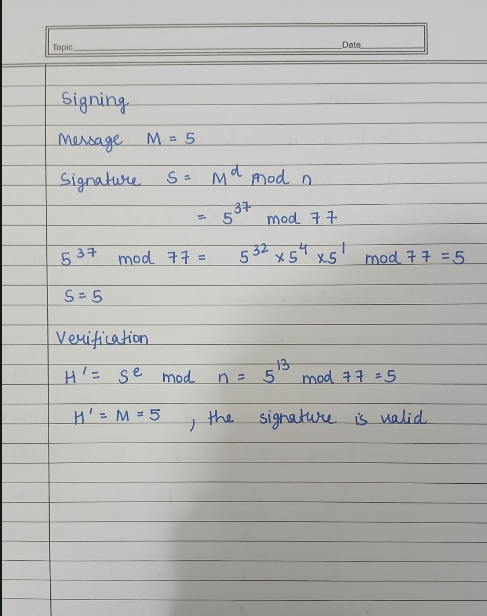 Topic Date
Signing
Message M = 5
Signature S = M^d mod n
= 5^37 mod 77
5^37 mod 77 = 5^32 × 5^4 × 5^1 mod 77 = 5
S = 5
Verification
H' = S^e mod n = 5^13 mod 77 = 5
H' = M = 5 , the signature is valid